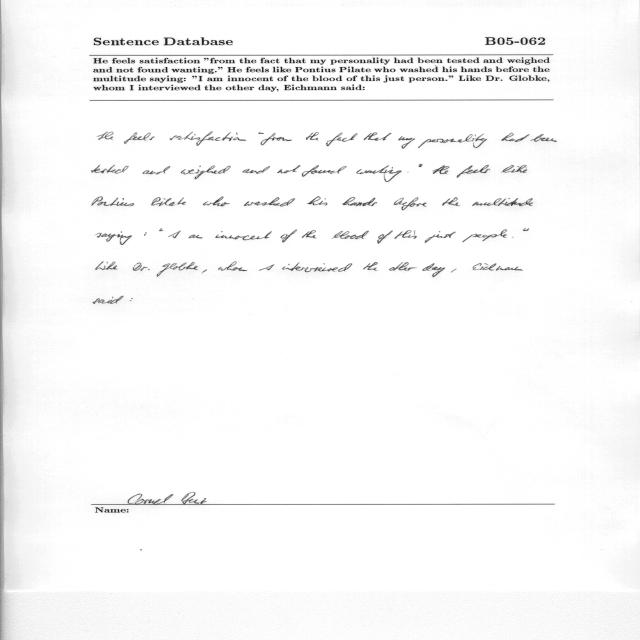 Sentence Database B05-062
He feels satisfaction "from the fact that my personality had been tested and weighed
and not found wanting." He feels like Pontius Pilate who washed his hands before the
multitude saying: "I am innocent of the blood of this just person." Like Dr. Globke,
whom I interviewed the other day, Eichmann said:
He feels satisfaction "from the fact that my personality had been
tested and weighed and not found wanting." He feels like
Pontius Pilate who washed his hands before the multitude
saying: "I am innocent of the blood of this just people."
Like Dr. Globke, whom I interviewed the other day, Eichmann
said:
Name: